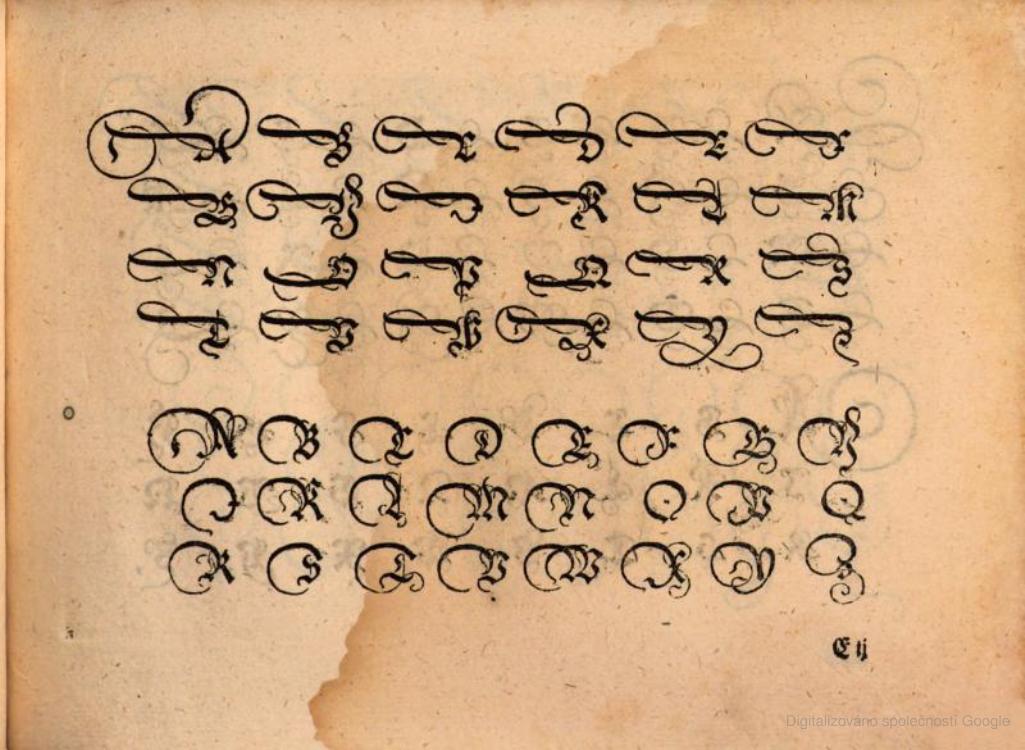 A B C D E F
G H I K L M
N O P Q R S
T V W X Y Z
A B C D E F G H
I K L M N O P Q
R S T V W X Y Z
E ij
Digitalizováno společností Google